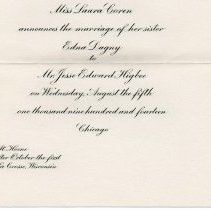 Miss Laura Coren
announces the marriage of her sister
Edna Dagny
to
Mr. Jesse Edward Higbee
on Wednesday, August the fifth
one thousand nine hundred and fourteen
Chicago
At Home
after October the first
La Crosse, Wisconsin